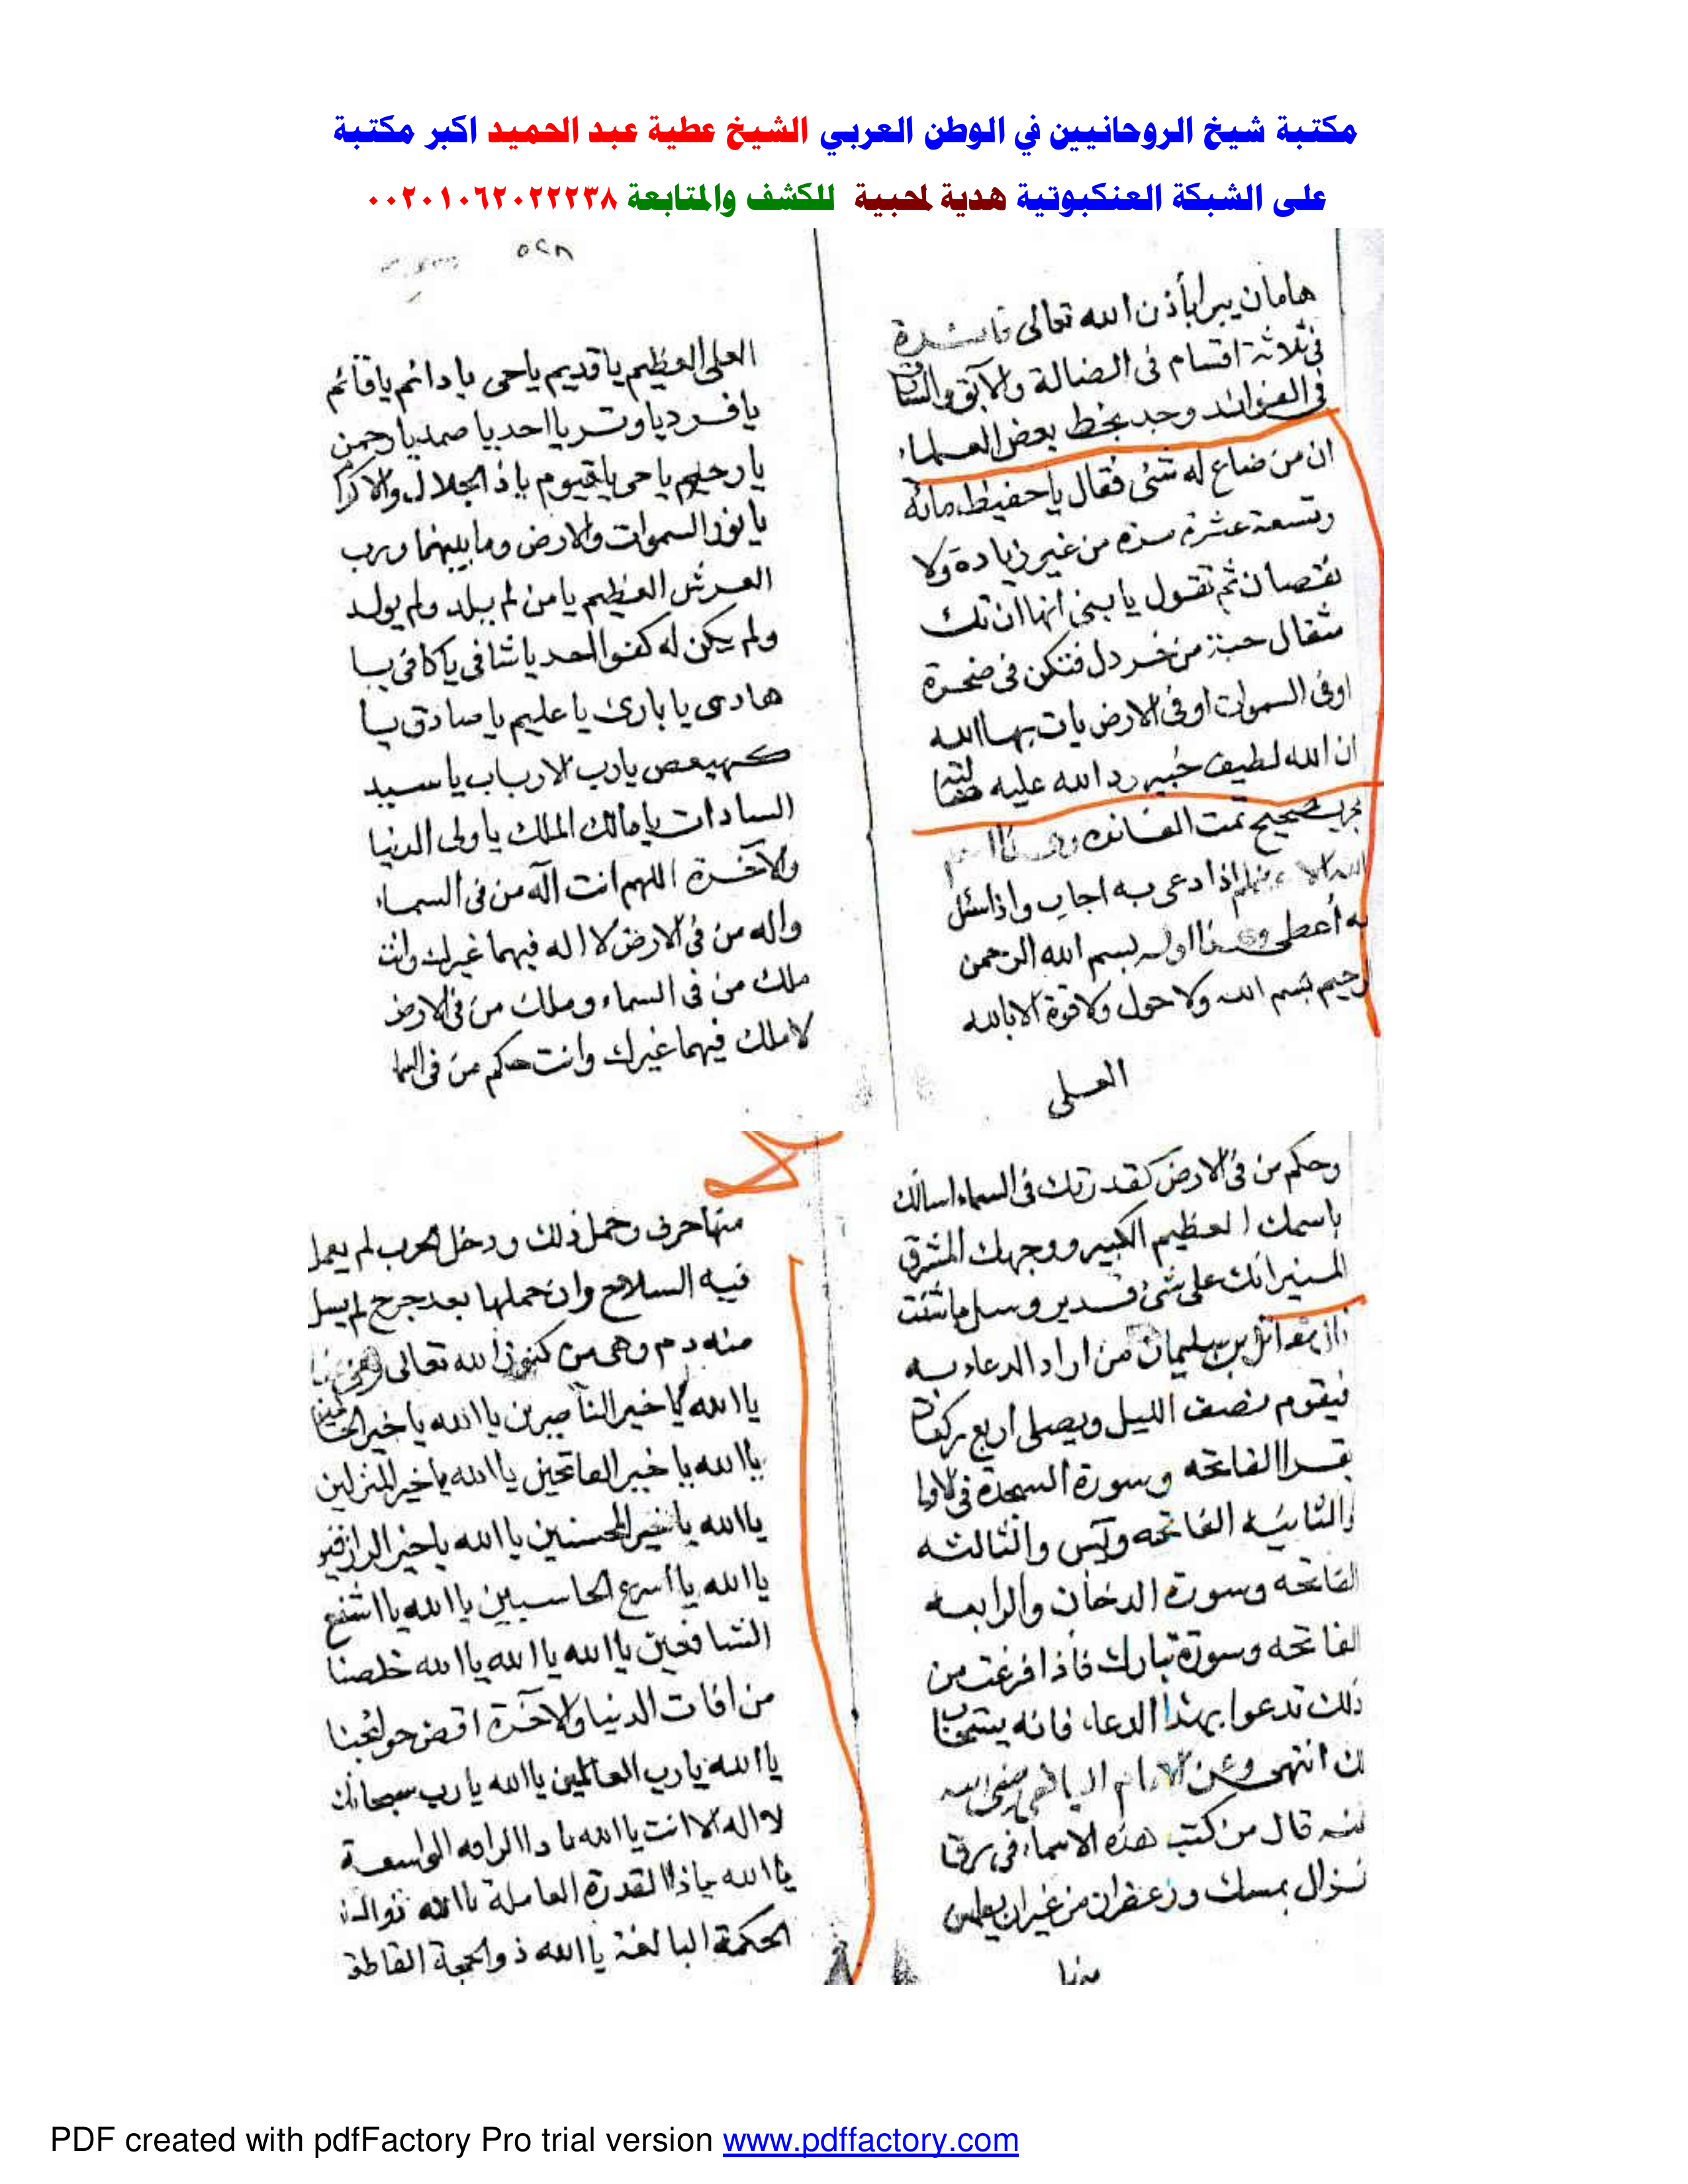 مكتبة شيخ الروحانيين في الوطن العربي الشيخ عطية عبد الحميد اكبر مكتبة
على الشبكة العنكبوتية هدية لمحبية للكشف والمتابعة ٠٠٢٠١٠٦٢٠٢٢٢٣٨
هامان يبرا بأذن الله تعالى
فى ثلاثة اقسام فى الضالة والآبق
فى الفوائد وجد بخط بعض العلماء
ان من ضاع له شئ فقال يا حفيظ مائة
وتسعة عشرة مرة من غير زيادة ولا
نقصان ثم تقول يا بنى انها ان تك
مثقال حبة من خردل فتكن فى صخرة
او فى السموات او فى الارض يات بها الله
ان الله لطيف خبير رد الله عليه
مجرب صحيح تمت الفائده
اذا دعى به اجاب واذا سئل
به أعطى اوله بسم الله الرحمن
رحيم بسم الله ولا حول ولا قوة الا بالله
العلى
العلى العظيم يا قديم يا حى يا دائم يا قائم
يا فرد يا وتر يا احد يا صمد يا رحمن
يا رحيم يا حى يا قيوم ياذ الجلال والاكرام
يا نور السموات والارض وما بينهما ورب
العرش العظيم يا من لم يلد ولم يولد
ولم يكن له كفوا احد يا شافى يا كافى يا
هادى يا بارئ يا عليم يا صادق يا
كهيعص يا رب الارباب يا سيد
السادات يا مالك الملك يا ولى الدنيا
والآخرة اللهم انت اله من فى السماء
واله من فى الارض لا اله فيهما غيرك وانت
ملك من فى السماء وملك من فى الارض
لا ملك فيهما غيرك وانت حكم من فى السما
وحكم من فى الارض كقدرتك فى السماء اسالك
باسمك العظيم الكبير ووجهك المشرق
المنير انك على شئ قدير وسل ما شئت
بن سليمان من اراد الدعاء به
فيقوم نصف الليل ويصلى اربع ركعات
يقرا الفاتحه وسورة السجدة فى الاولى
والثانيه الفاتحه ويس والثالثه
الفاتحه وسورة الدخان والرابعه
الفاتحه وسورة تبارك فأذا فرغت من
ذلك تدعوا بهذا الدعاء فانه يستجاب
لك انتهى وعن الامام
عنه قال من كتب هذه الاسماء فى رق
غزال بمسك وزعفران من غير ان يطمس
منها
منها حرف وحمل ذلك ودخل الحرب لم يعمل
فيه السلاح وان حملها بعد جرح لم يسل
منه دم وهى من كنوز الله تعالى
يا الله يا خير الناصرين يا الله يا خير
يا الله يا خير الفاتحين يا الله يا خير المنزلين
يا الله يا خير المحسنين يا الله يا خير الرازقين
يا الله يا اسرع الحاسبين يا الله يا اشفع
الشافعين يا الله يا الله يا الله خلصنا
من افات الدنيا والاخرة اقض حوائجنا
يا الله يا رب العالمين يا الله يا رب سبحانك
لا اله الا انت يا الله الرافه الواسعة
يا الله ياذا القدرة العاملة يا الله
الحكمة البالغة يا الله ذو الحجة القاطعة
PDF created with pdfFactory Pro trial version www.pdffactory.com